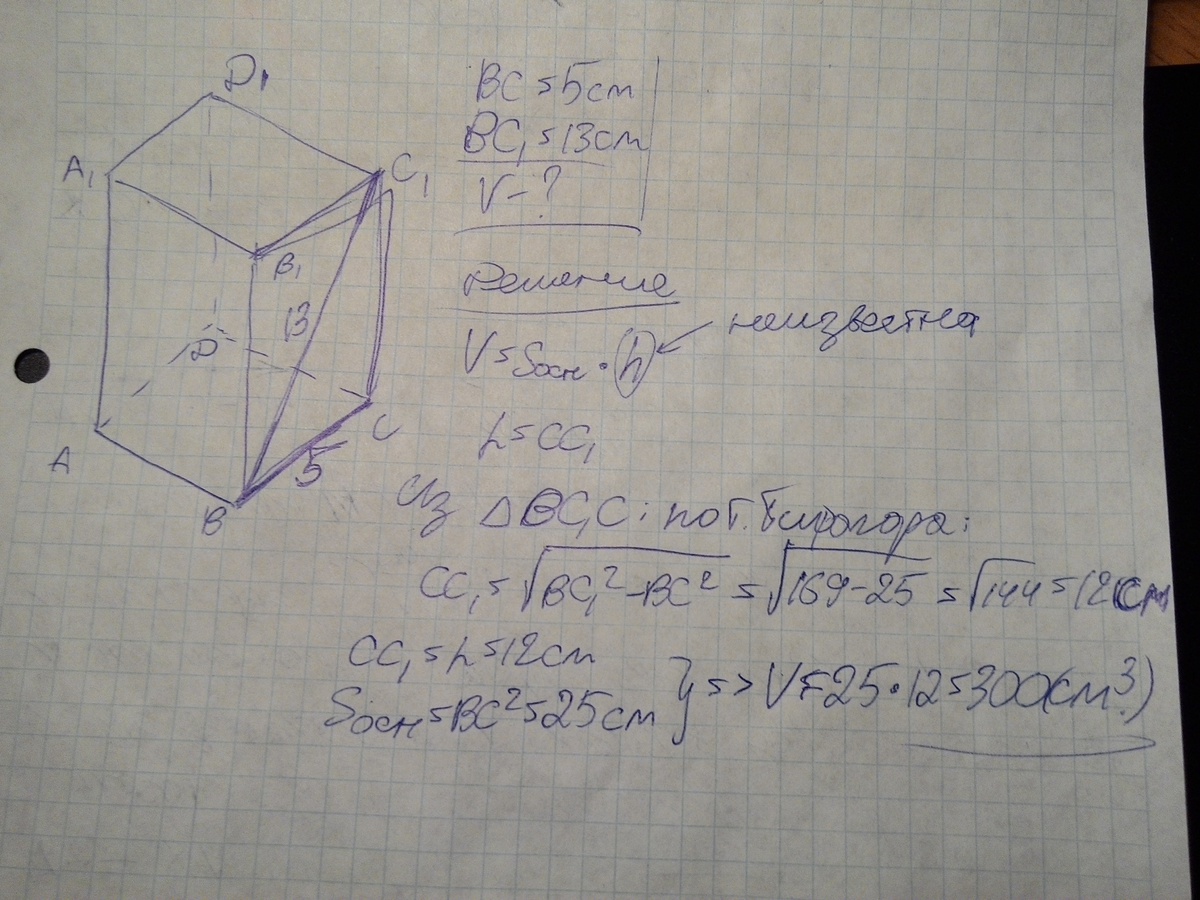 D₁
A₁
C₁
B₁
13
D
A
C
5
B
BC = 5см
BC₁ = 13см
V - ?
Решение
V = Sосн · h ← неизвестна
h = CC₁
Из △BC₁C: по т. Пифагора:
CC₁ = √BC₁² - BC² = √169-25 = √144 = 12см
CC₁ = h = 12см
Sосн = BC² = 25см } => V = 25·12 = 300(см³)